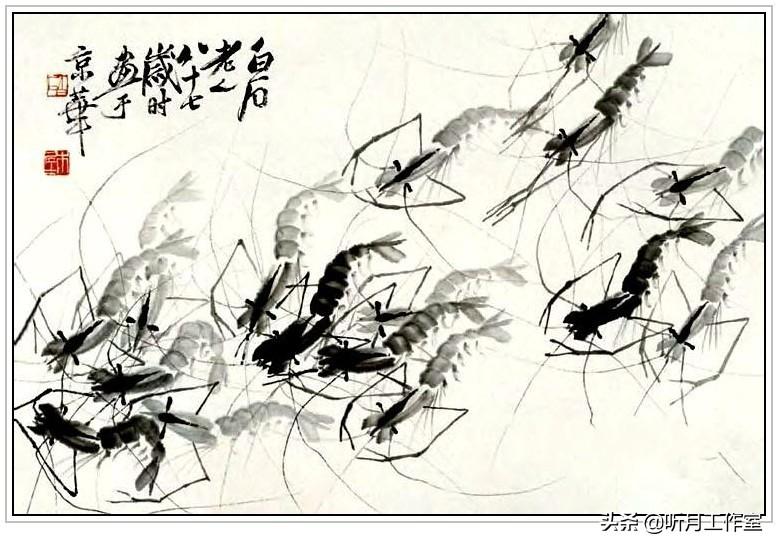 白石
老人
八十七
歲时
畫于
京華
头条 @听月工作室